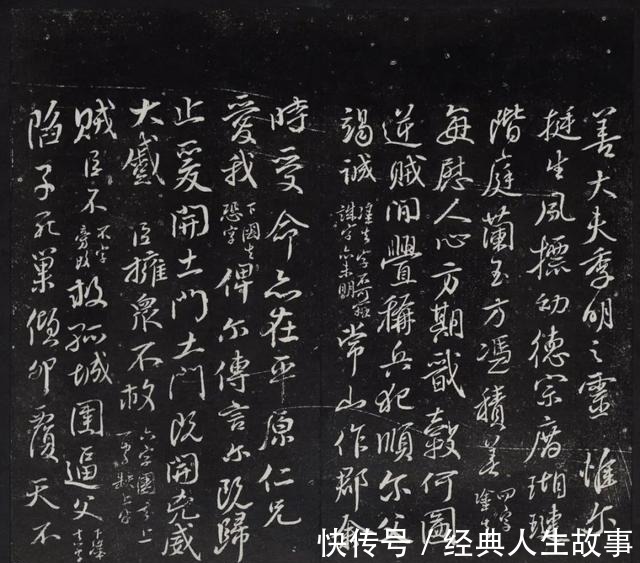 善大夫季明之靈 惟尔
挺生夙標幼德宗廟瑚璉
階庭蘭玉方憑積善 四字塗去
每慰人心方期戩穀何圖
逆賊閒釁稱兵犯順尔父
竭誠 誅字亦未明 常山作郡余
時受命亦在平原仁兄
愛我 下圈去恐字 俾尔傳言尔既歸
止爰開土門土門既開兇威
大蹙 臣擁衆不救 六字圈去上一字
賊臣不 不字旁改 救孤城圍逼父
陷子死巢傾卵覆天不
快传号/经典人生故事